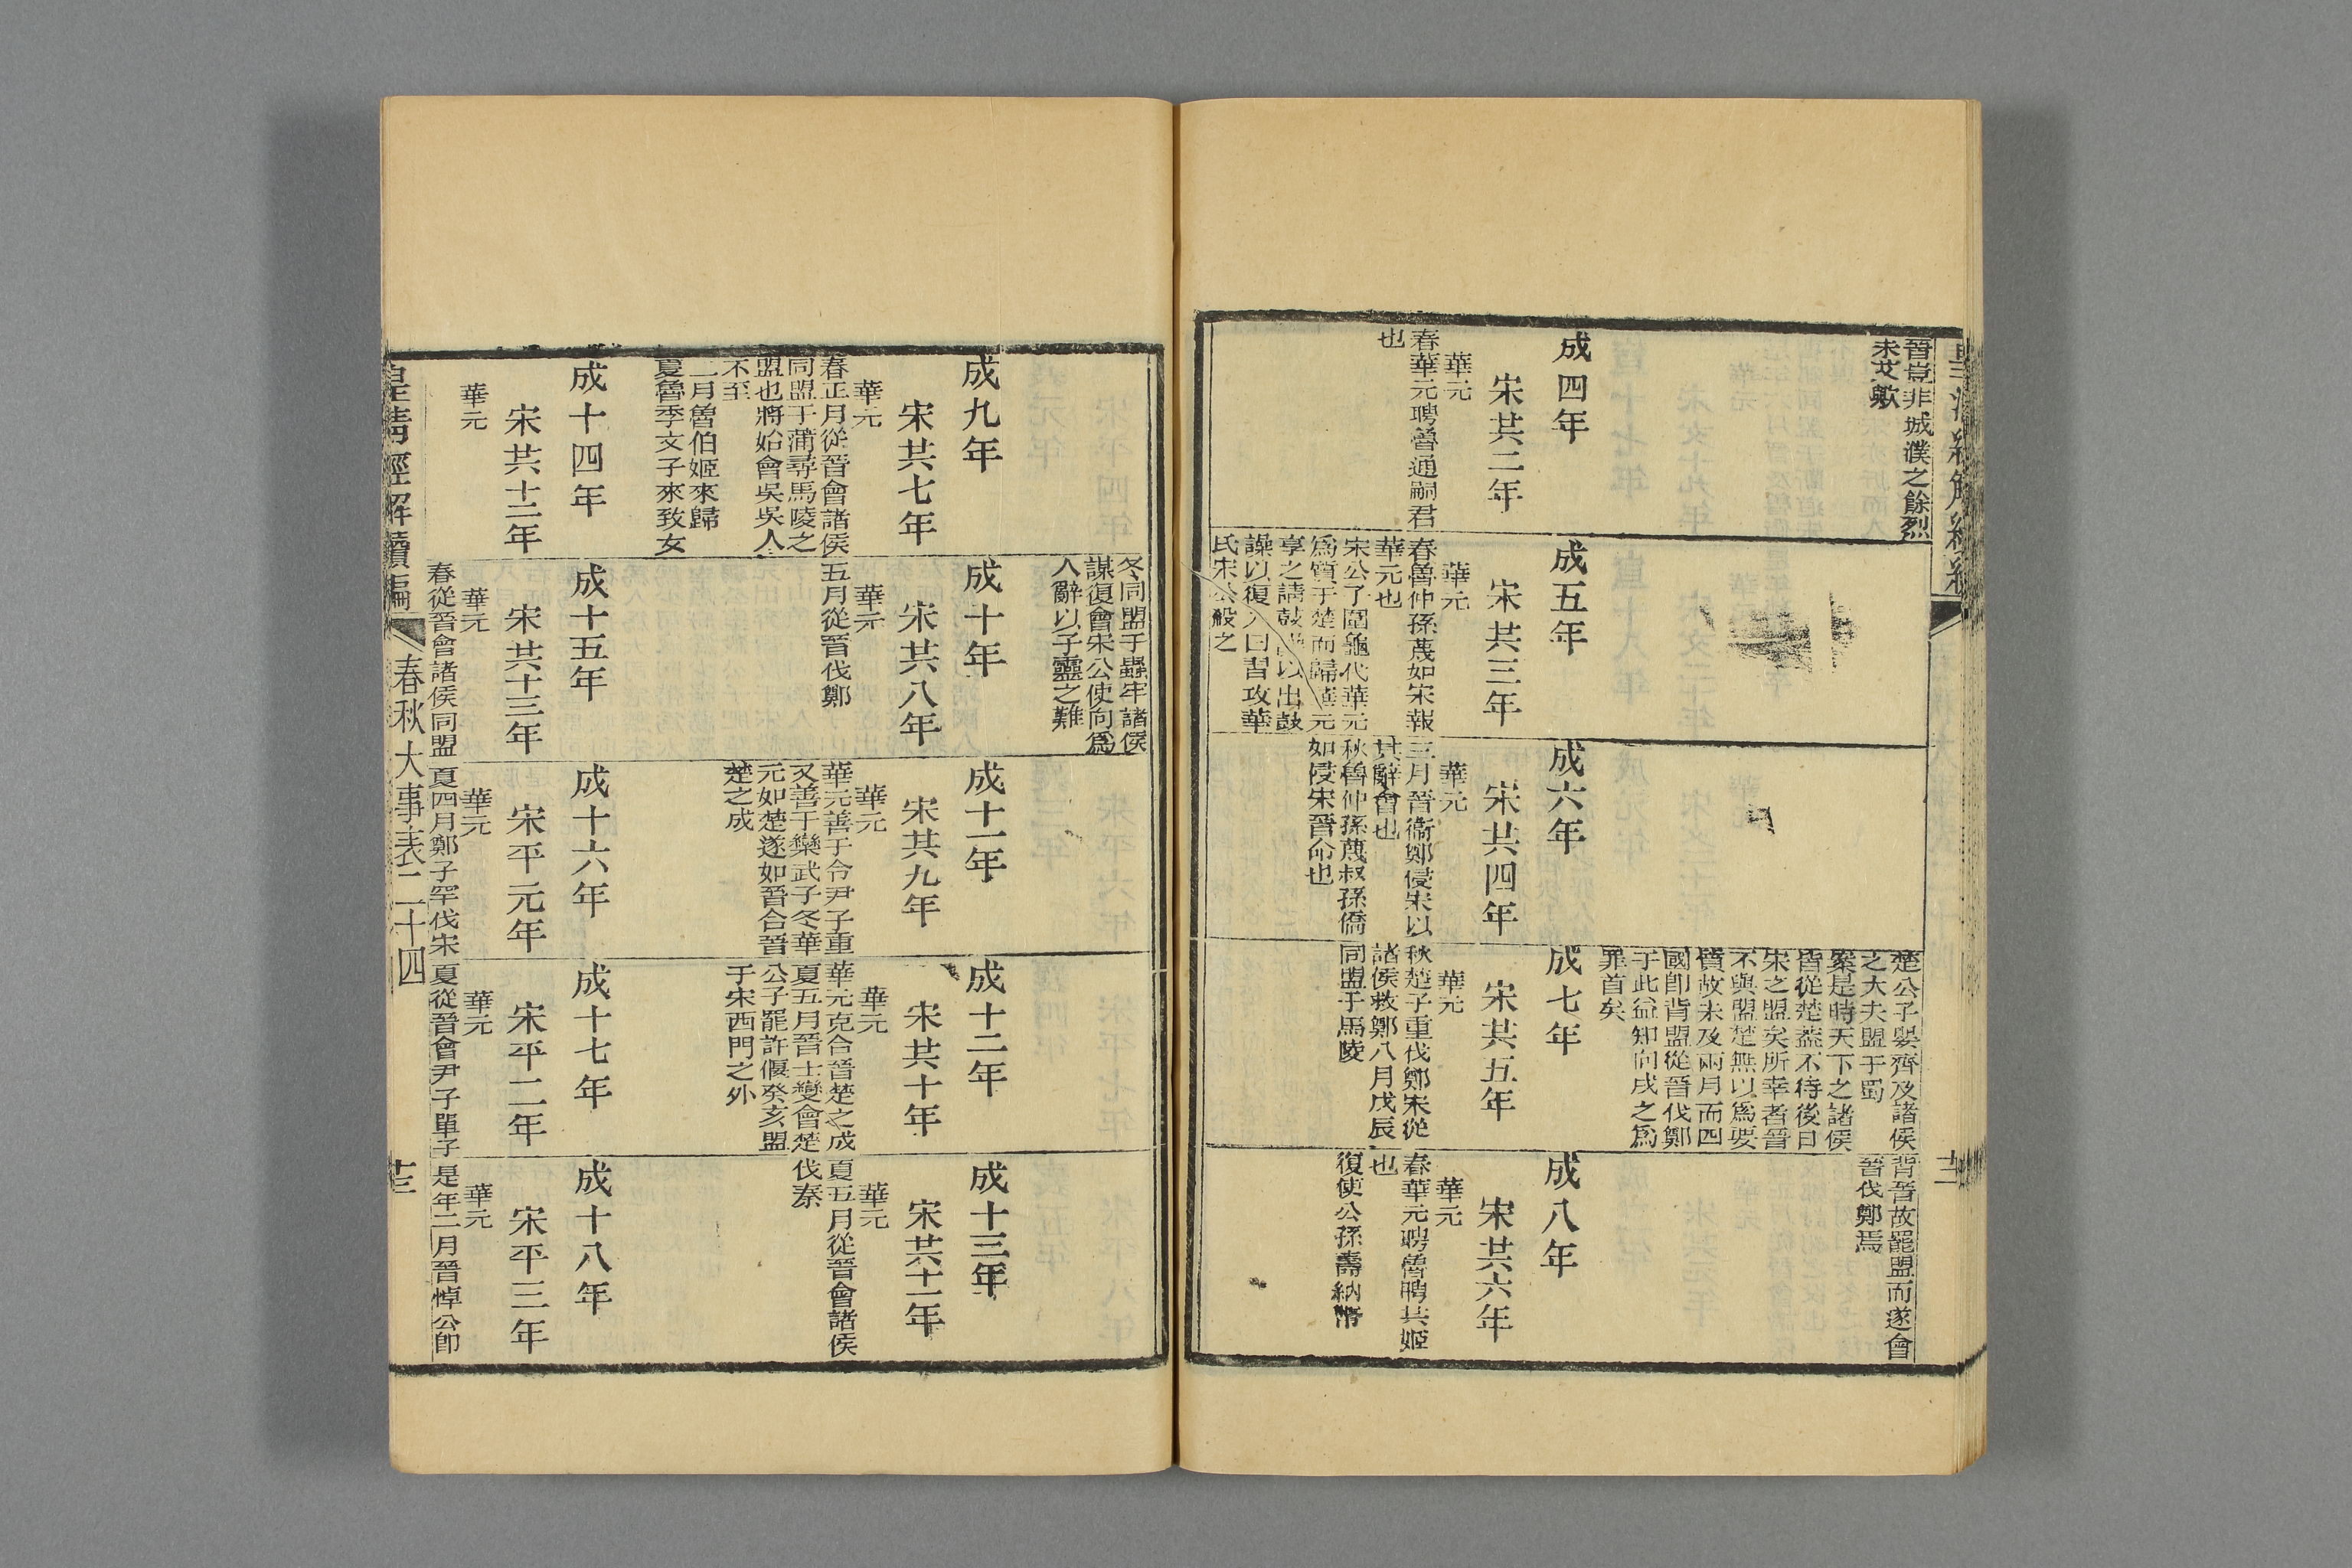 晉豈非城濮之餘烈
未艾歟
楚公子嬰齊及諸侯
之大夫盟于蜀
案是時天下之諸侯
皆從楚葢不待後日
宋之盟矣所幸者晉
不與盟楚無以爲要
質故未及兩月而四
國卽背盟從晉伐鄭
于此益知向戌之爲
罪首矣
背晉故罷盟而遂會
晉伐鄭焉
成四年
宋共二年
華元
春華元聘魯通嗣君
也
成五年
宋共三年
華元
春魯仲孫蔑如宋報
華元也
宋公子圍龜代華元
爲質于楚而歸華元
享之請鼓譟以出鼓
譟以復入曰習攻華
氏宋公殺之
成六年
宋共四年
華元
三月晉衞鄭侵宋以
其辭會也
秋魯仲孫蔑叔孫僑
如侵宋晉命也
成七年
宋共五年
華元
秋楚子重伐鄭宋從
諸侯救鄭八月戊辰
同盟于馬陵
成八年
宋共六年
華元
春華元聘魯聘共姬
也
復使公孫壽納幣
冬同盟于蟲牢諸侯
謀復會宋公使向爲
人辭以子靈之難
成九年
宋共七年
華元
春正月從晉會諸侯
同盟于蒲尋馬陵之
盟也將始會吳吳人
不至
二月魯伯姬來歸
夏魯季文子來致女
成十年
宋共八年
華元
五月從晉伐鄭
成十一年
宋共九年
華元
華元善于令尹子重
又善于欒武子冬華
元如楚遂如晉合晉
楚之成
成十二年
宋共十年
華元
華元克合晉楚之成
夏五月晉士燮會楚
公子罷許偃癸亥盟
于宋西門之外
成十三年
宋共十一年
華元
夏五月從晉會諸侯
伐秦
成十四年
宋共十二年
華元
成十五年
宋共十三年
華元
春從晉會諸侯同盟
成十六年
宋平元年
華元
夏四月鄭子罕伐宋
成十七年
宋平二年
華元
夏從晉會尹子單子
成十八年
宋平三年
華元
是年二月晉悼公卽
皇清經解續編
春秋大事表二十四
十三